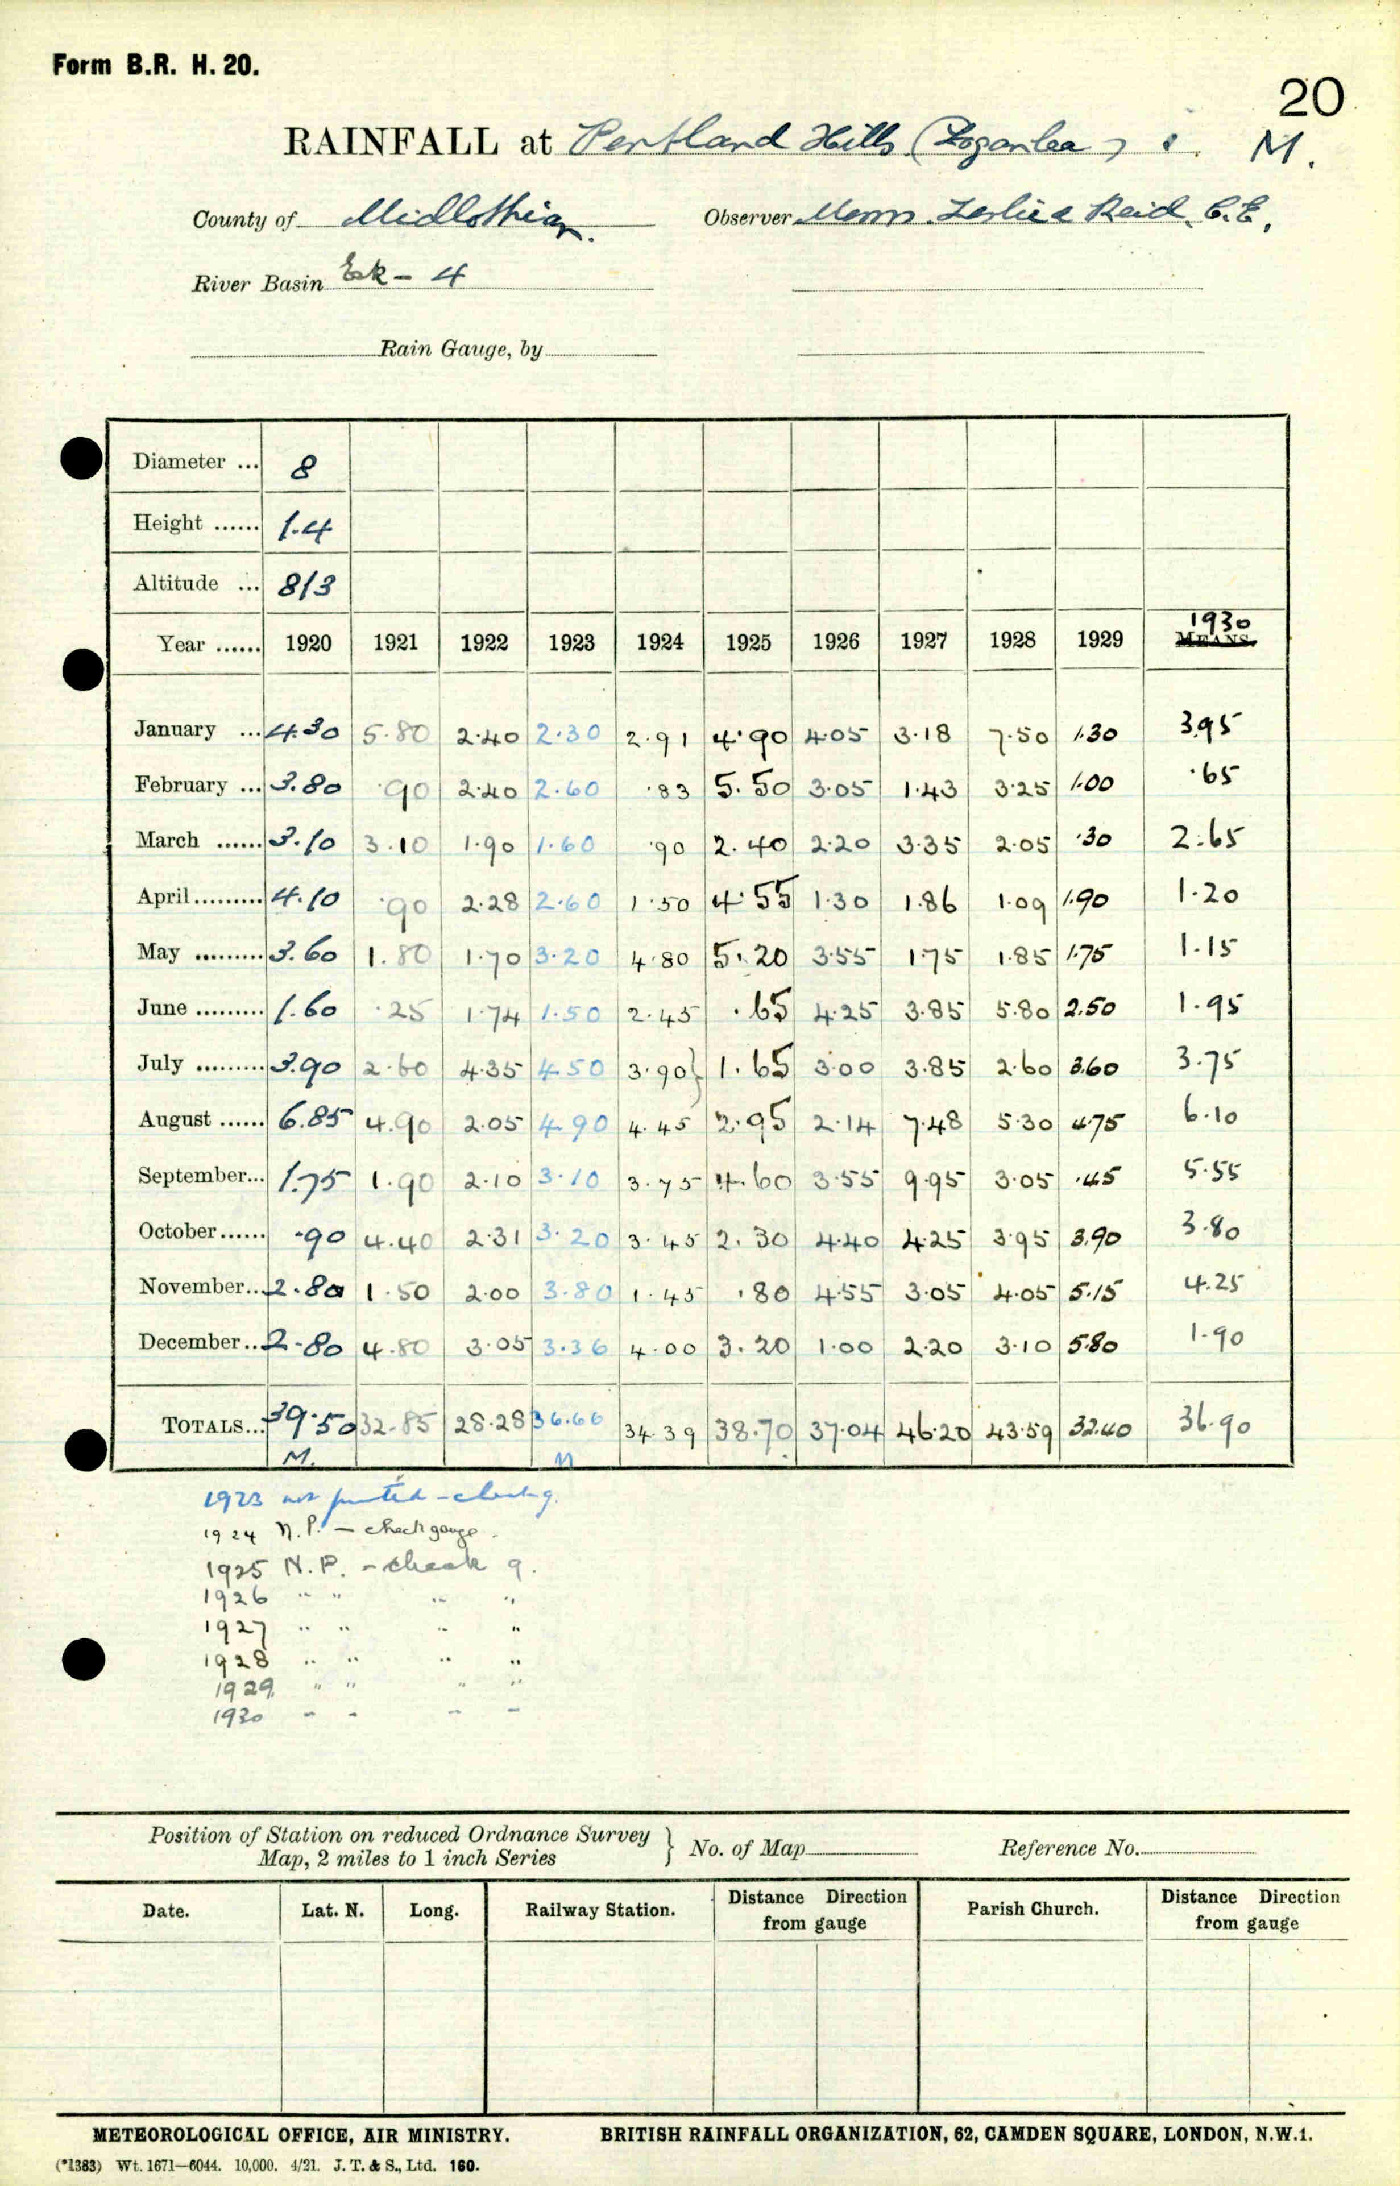 Form B.R. H. 20.
20
RAINFALL at Pentland Hills (Loganlea) M.
County of Midlothian. Observer Messrs. Leslie & Reid, C.E.,
River Basin Esk - 4
Rain Gauge, by
Diameter ... 8
Height ...... 1.4
Altitude ... 813
Year ...... 1920 1921 1922 1923 1924 1925 1926 1927 1928 1929 1930 MEANS.
January ... 4.30 5.80 2.40 2.30 2.91 4.90 4.05 3.18 7.50 1.30 3.95
February ... 3.80 .90 2.40 2.60 .83 5.50 3.05 1.43 3.25 1.00 .65
March ...... 3.10 3.10 1.90 1.60 .90 2.40 2.20 3.35 2.05 .30 2.65
April ......... 4.10 .90 2.28 2.60 1.50 4.55 1.30 1.86 1.09 1.90 1.20
May ......... 3.60 1.80 1.70 3.20 4.80 5.20 3.55 1.75 1.85 1.75 1.15
June ......... 1.60 .25 1.74 1.50 2.45 .65 4.25 3.85 5.80 2.50 1.95
July ......... 3.90 2.60 4.35 4.50 3.90} 1.65 3.00 3.85 2.60 3.60 3.75
August ...... 6.85 4.90 2.05 4.90 4.45 2.95 2.14 7.48 5.30 4.75 6.10
September... 1.75 1.90 2.10 3.10 3.75 4.60 3.55 9.95 3.05 .45 5.55
October ...... .90 4.40 2.31 3.20 3.45 2.30 4.40 4.25 3.95 3.90 3.80
November... 2.80 1.50 2.00 3.80 1.45 .80 4.55 3.05 4.05 5.15 4.25
December ... 2.80 4.80 3.05 3.36 4.00 3.20 1.00 2.20 3.10 5.80 1.90
TOTALS... 39.50 32.85 28.28 36.66 34.39 38.70 37.04 46.20 43.59 32.40 36.90
M. M
1923 not printed - check g.
1924 N.P. - check gauge.
1925 N.P. - check g.
1926 " " " "
1927 " " " "
1928 " " " "
1929 " " " "
1930 " " " "
Position of Station on reduced Ordnance Survey } No. of Map Reference No.
Map, 2 miles to 1 inch Series
Date. Lat. N. Long. Railway Station. Distance Direction from gauge Parish Church. Distance Direction from gauge
METEOROLOGICAL OFFICE, AIR MINISTRY. BRITISH RAINFALL ORGANIZATION, 62, CAMDEN SQUARE, LONDON, N.W.1.
(*1383) Wt. 1671—6044. 10,000. 4/21. J. T. & S., Ltd. 160.